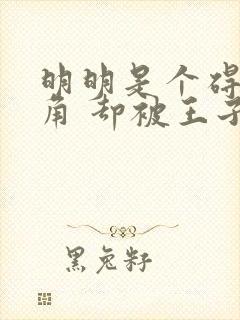 明明是个碍
角 却被王子
黑兔籽